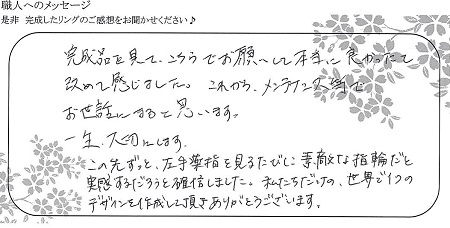 職人へのメッセージ
是非 完成したリングのご感想をお聞かせください♪
完成品を見て、こちらでお願いして本当に良かったと
改めて感じました。これから、メンテナンス等で
お世話になると思います。
一生、大切にします。
この先ずっと、左手薬指を見るたびに素敵な指輪だと
実感するだろうと確信しました。私たちだけの、世界で1つの
デザインを作成して頂きありがとうございます。